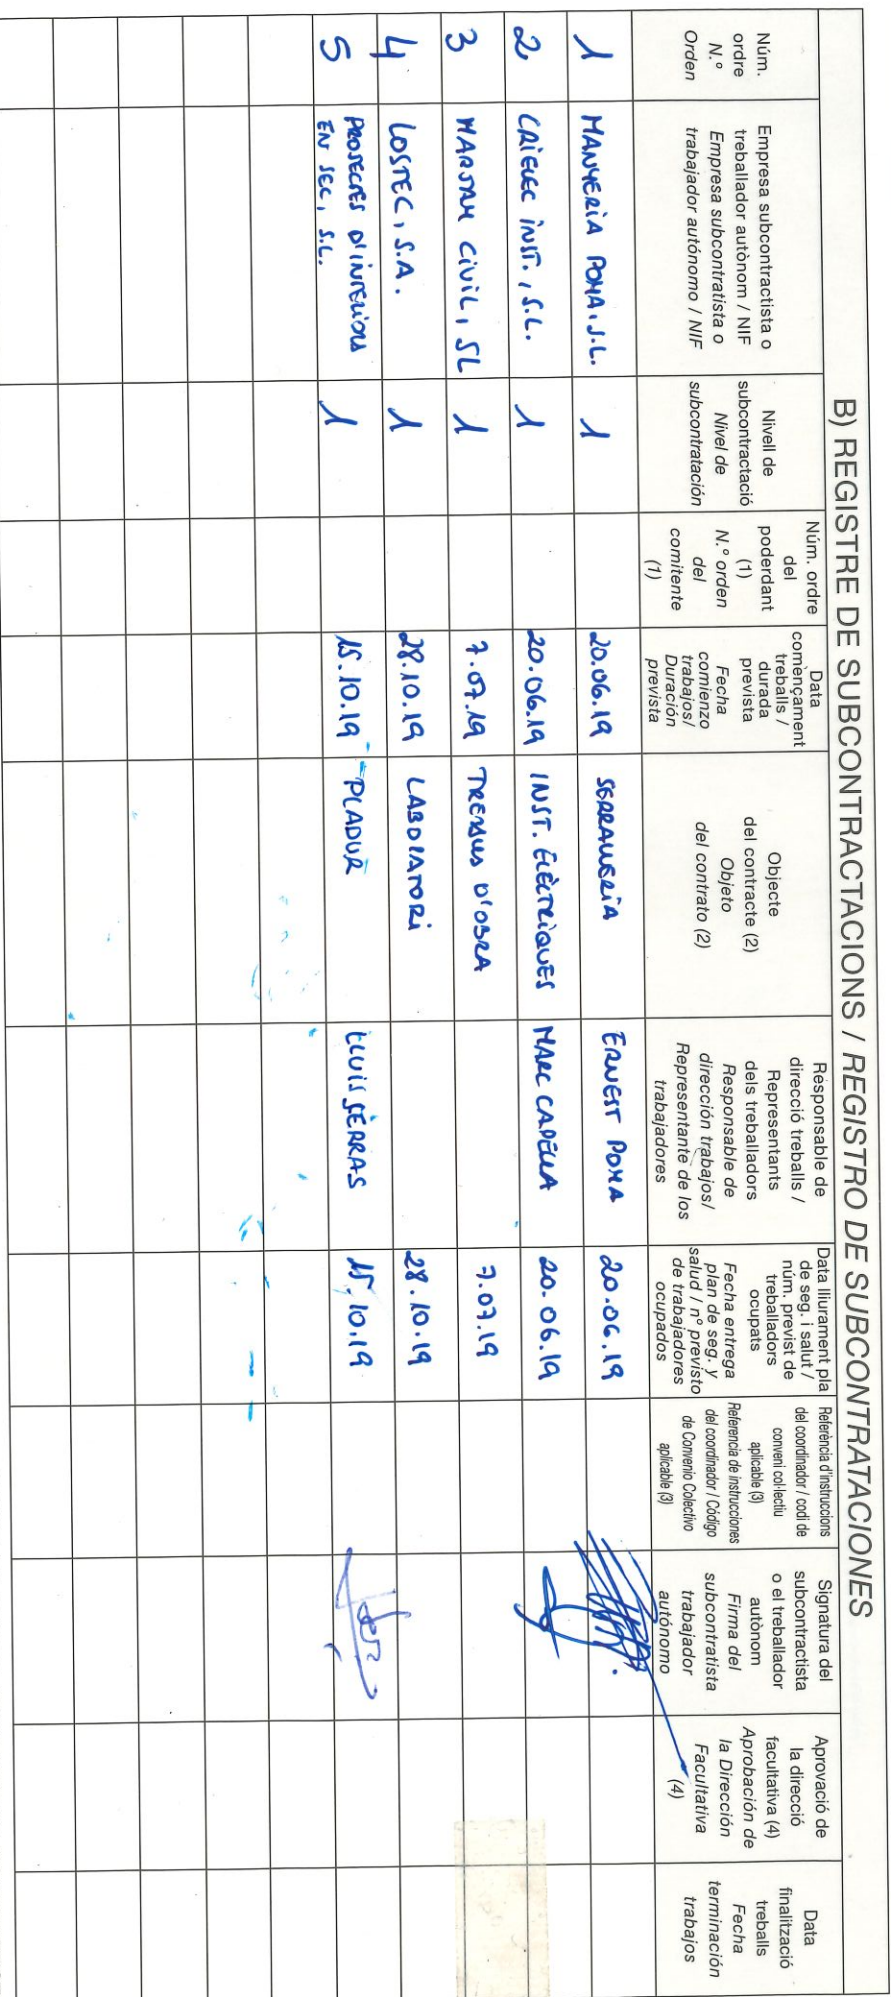 B) REGISTRE DE SUBCONTRACTACIONS / REGISTRO DE SUBCONTRATACIONES
Núm.
ordre
N.º
Orden
Empresa subcontractista o
treballador autònom / NIF
Empresa subcontratista o
trabajador autónomo / NIF
Nivell de
subcontractació
Nivel de
subcontratación
Núm. ordre
del
poderdant
(1)
N.º orden
del
comitente
(1)
Data
començament
treballs /
durada
prevista
Fecha
comienzo
trabajos/
Duración
prevista
Objecte
del contracte (2)
Objeto
del contrato (2)
Responsable de
direcció treballs /
Representants
dels treballadors
Responsable de
dirección trabajos/
Representante de los
trabajadores
Data lliurament pla
de seg. i salut /
núm. previst de
treballadors
ocupats
Fecha entrega
plan de seg. y
salud / nº previsto
de trabajadores
ocupados
Referència d'instruccions
del coordinador / codi de
conveni col·lectiu
aplicable (3)
Referencia de instrucciones
del coordinador / Código
de Convenio Colectivo
aplicable (3)
Signatura del
subcontractista
o el treballador
autònom
Firma del
subcontratista
trabajador
autónomo
Aprovació de
la direcció
facultativa (4)
Aprobación de
la Dirección
Facultativa
(4)
Data
finalització
treballs
Fecha
terminación
trabajos
1 MANYERIA POMA, S.L. 1 20.06.19 SERRALLERIA ERNEST POMA 20.06.19
2 CRIELEC INST., S.L. 1 20.06.19 INST. ELÈCTRIQUES MARC CAPELLA 20.06.19
3 MARJAM CIVIL, SL 1 7.07.19 TREBALLS D'OBRA 7.07.19
4 LOSTEC, S.A. 1 28.10.19 LABORATORI 28.10.19
5 PROJECTES D'INTERIORS 1 15.10.19 PLADUR LLUIS SERRAS 15.10.19
EN SEC, S.L.